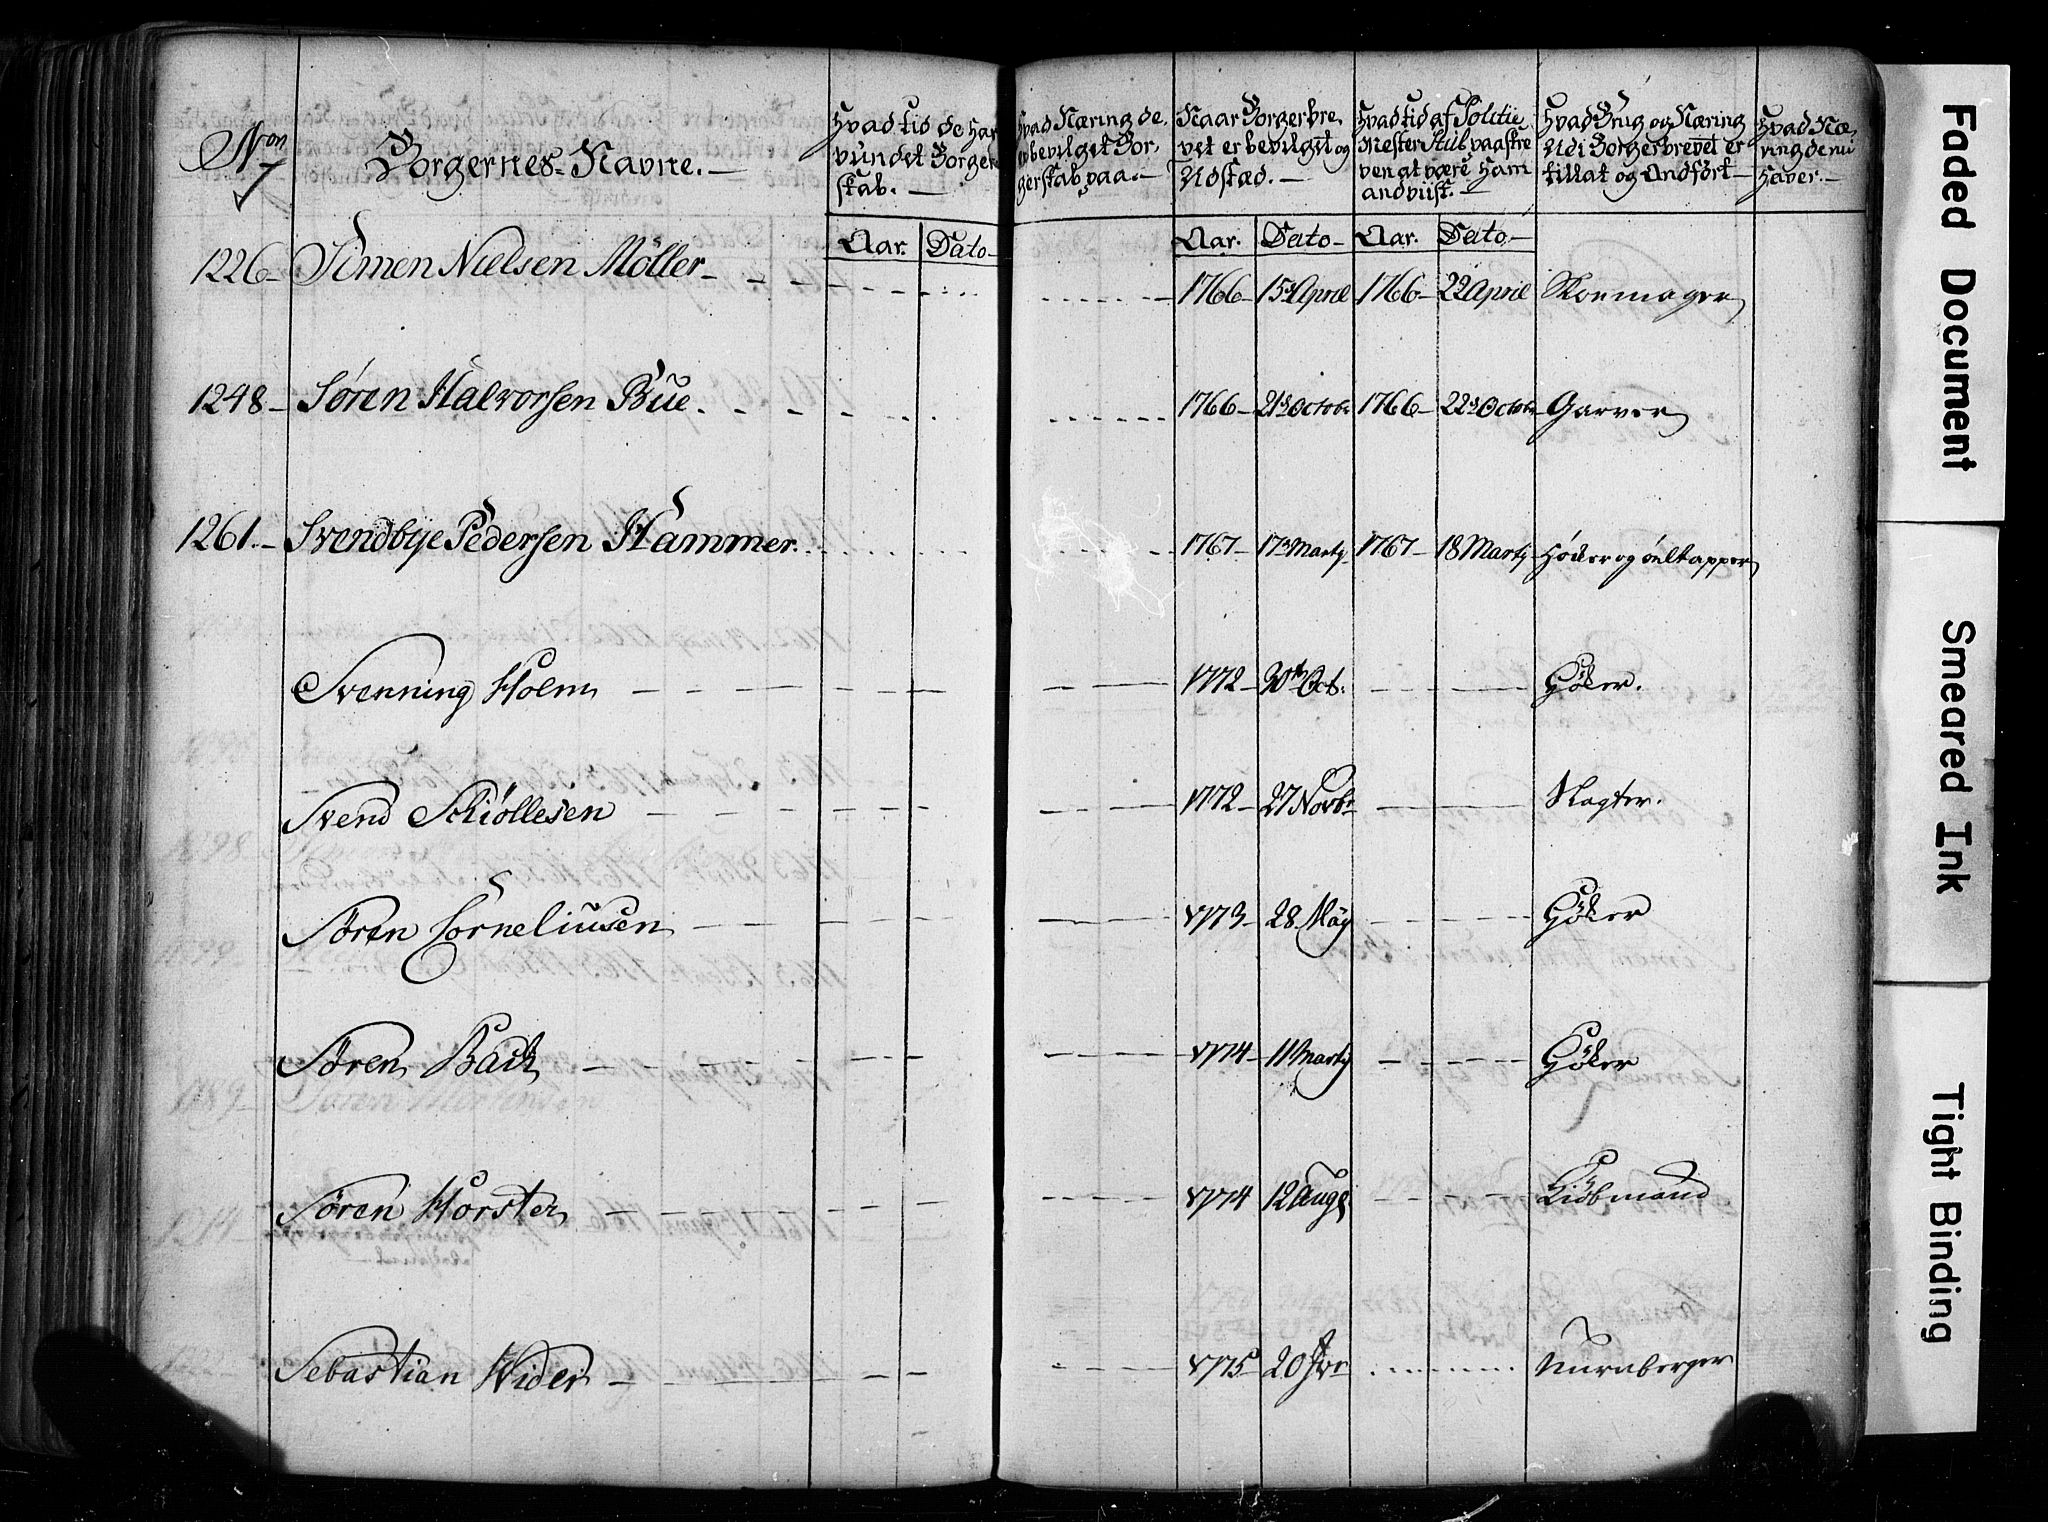 Non
7
Borgernes Navne.—
Hvad tid de har
vundet Borger
skab.—
Hvad Næring de
er bevilget Bor-
gerskab paa.—
Naar Borgerbre
vet er bevilget og
Udstæd.—
Hvad tid af Politie
Mester Stub paaskre
ven at være ham
andviist.—
Hvad Brug og Næring
Udi Borgerbrevet er
tillat og Andført—
Hvad Næ,
ring de nu
Haver.—
Aar. Dato— Aar. Dato— Aar. Dato—
1226— Simen Nielsen Möller— 1766— 15d April 1766— 22 April Skoemager
1248— Søren Halvorsen Bue. 1766— 21d Octobr 1766— 22d Octobr Garver
1261.— Svendbye Pedersen Hammer. 1767— 17d Marty 1767— 18 Marty Høker og øeltapper
Svenning Holm — 1772— 30th Oct: Høker.
Svend Skiöllesen — 1772— 27 Novbr Slagter.
Søren Corneliusen — 1773— 28 Maÿ Høker
Søren Back — 1774— 11 Marty Høker
Søren Horster — 1774 12 Aug Kiøbmand
Sebastian Wider — 1775— 20 Nürnberger
Faded Document
Smeared Ink
Tight Binding